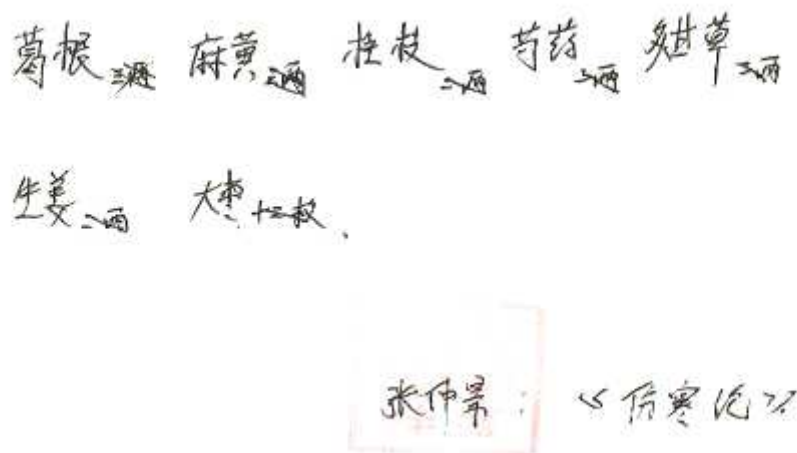 葛根三两 麻黄二两 桂枝二两 芍药二两 炙甘草二两
生姜二两 大枣十二枚、
张仲景：《伤寒论》